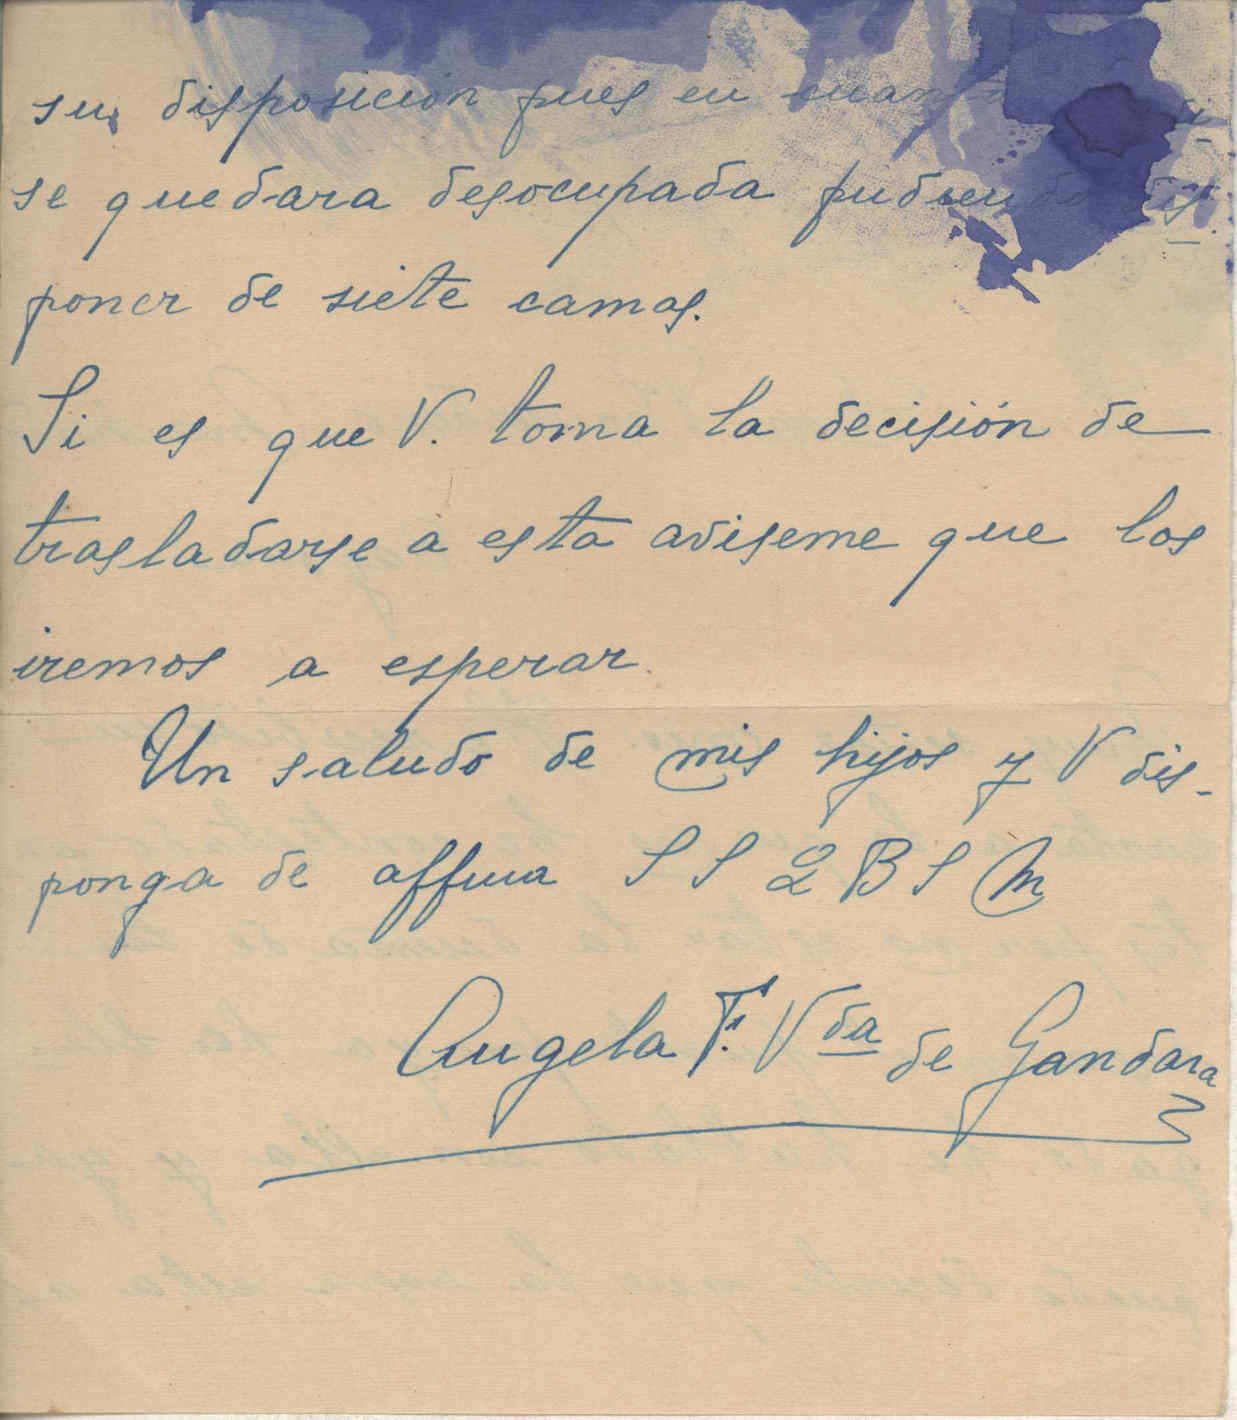 su disposicion pues en
se quedara desocupada pudiendo dis
poner de siete camas.
Si es que V. toma la decisión de
trasladarse a esta aviseme que los
iremos a esperar.
Un saludo de mis hijos y V dis-
ponga de affma S S Q B S M
Angela F. Vda de Gandara